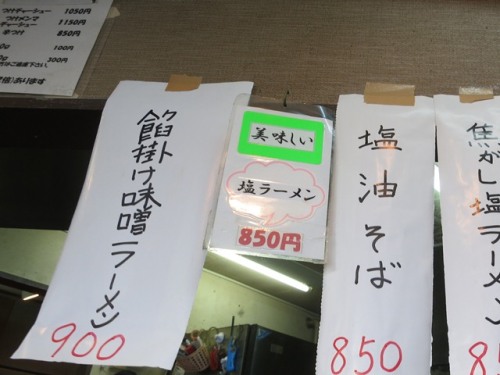 つけチャーシュー 1050円
つけメンマ 1150円
チャーシュー 850円
100円
300円
あります
餡掛け味噌ラーメン
900
美味しい
塩ラーメン
850円
塩油そば
850
焦がし塩ラーメン
8